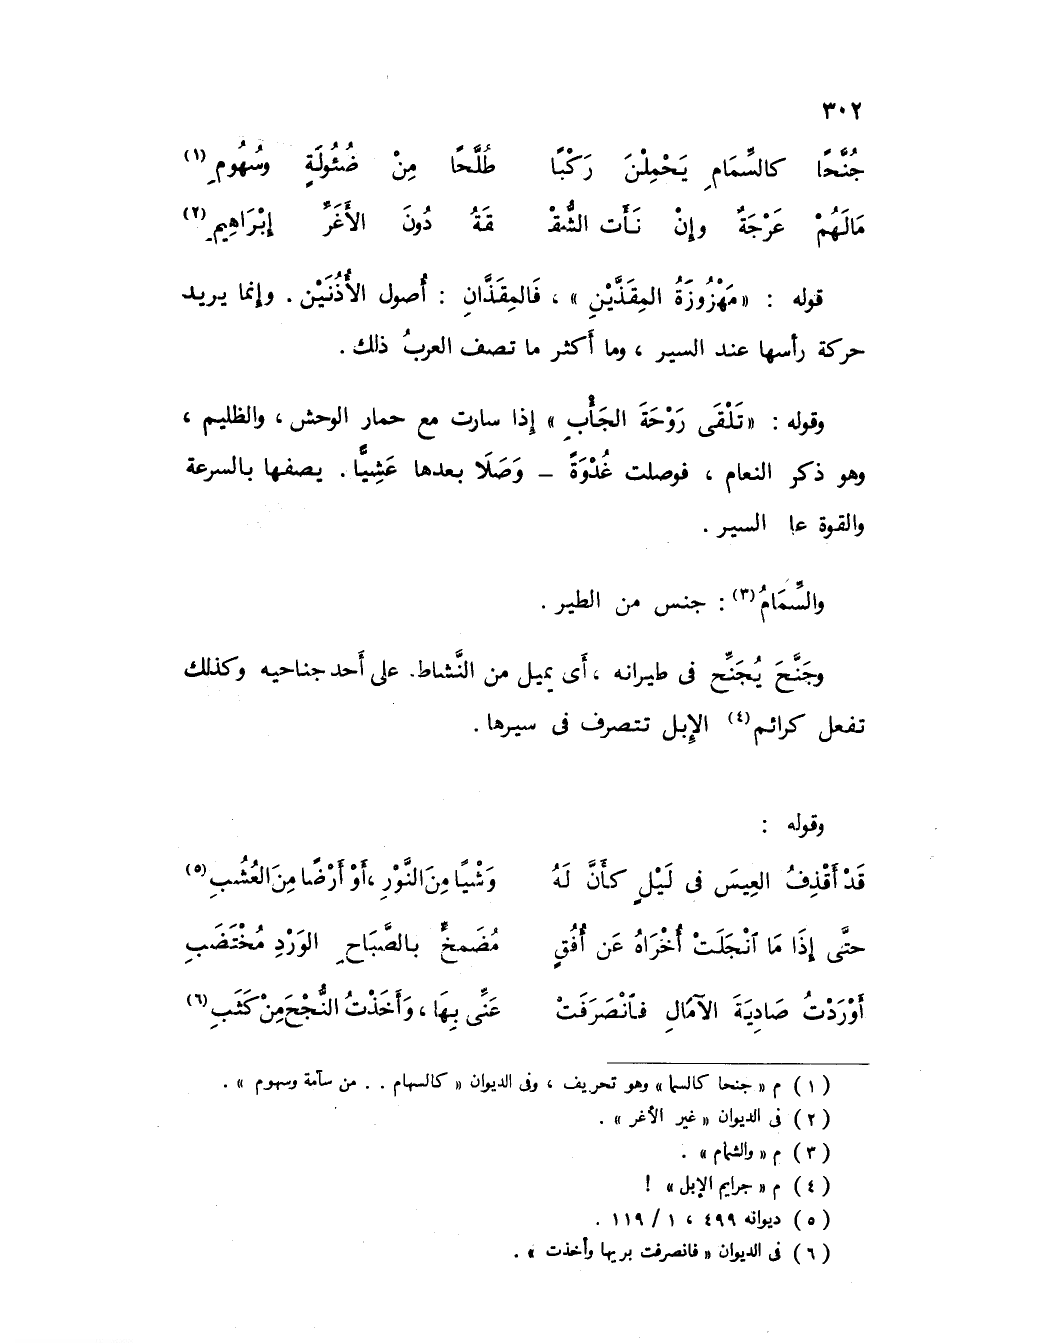 ٣٠٢
جُنَّحًا كالسَّمَامِ يَحْمِلْنَ رَكْبًا طُلَّحًا مِنْ ضُئُولَةٍ وسُهُومِ (١)
مَالَهُمْ عَرْجَةٌ وإنْ نَأَت الشُّقْـ ـقَةُ دُونَ الأَغَرِّ إبْرَاهِيمِ (٢)
قوله : « مَهْزُوزَةُ المِقَذَّيْنِ » ، فَالمِقَذَّانِ : أُصول الأُذُنَيْن . وإنما يريد
حركة رأسها عند السير ، وما أَكثر ما تصف العربُ ذلك .
وقوله : « تَلْقَى رَوْحَةَ الجَأْبِ » إذا سارت مع حمار الوحش ، والظليم ،
وهو ذكر النعام ، فوصلت غُدْوَةً – وَصَلَا بعدها عَشِيًّا . يصفها بالسرعة
والقوة عا السير .
والسِّمَامُ (٣) : جنس من الطير .
وجَنَّحَ يُجَنِّح فى طيرانه ، أَى يميل من النَّشاط . على أَحد جناحيه وكذلك
تفعل كرائم (٤) الإِبل تتصرف فى سيرها .
وقوله :
قَدْ أَقْذِفُ العِيسَ فى لَيْلٍ كأَنَّ لَهُ وَشْيًا مِنَ النَّوْرِ ، أَوْ أَرْضًا مِنَ العُشُبِ (٥)
حتَّى إذَا مَا ٱنْجَلَتْ أُخْرَاهُ عَن أُفُقٍ مُضَمخٌ بالصَّبَاحِ الوَرْدِ مُخْتَضَبِ
أَوْرَدْتُ صَادِيَةَ الآمَالِ فٱنْصَرَفَتْ عَنِّى بِهَا ، وَأَخَذْتُ النُّجْحَ مِنْ كَثَبِ (٦)
(١) م « جنحا كالسا » وهو تحريف ، وفى الديوان « كالسهام . . من سآمة وسهوم » .
(٢) فى الديوان « غير الأغر » .
(٣) م « والشمام » .
(٤) م « جرايم الإبل » !
(٥) ديوانه ٤٩٩ ، ١ / ١١٩ .
(٦) فى الديوان « فانصرفت بريها وأخذت » .